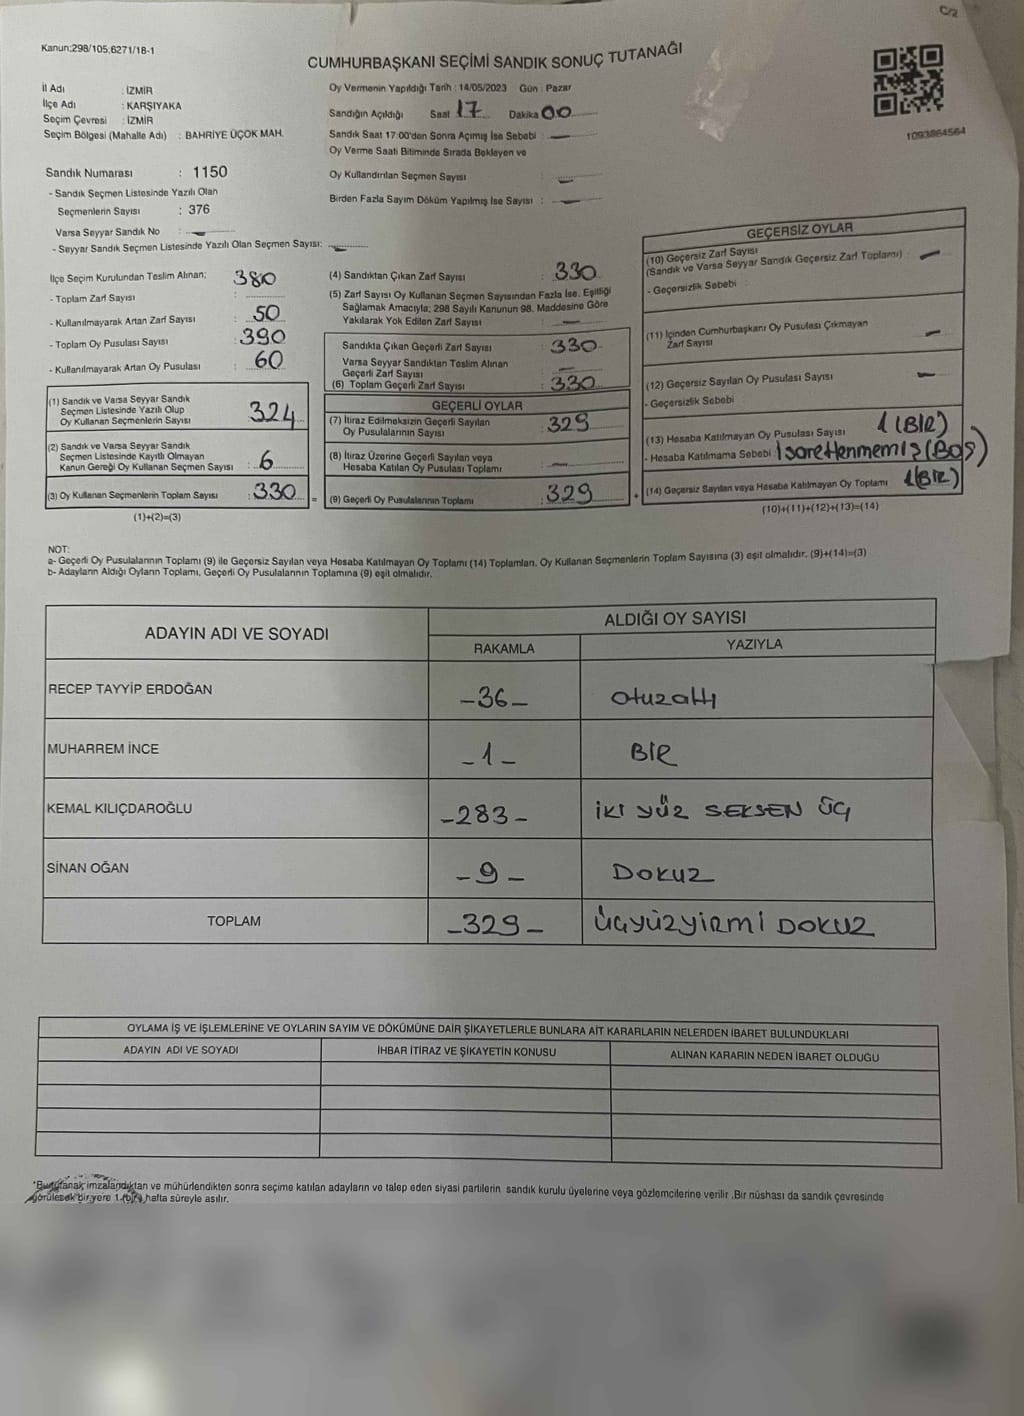 C/2
Kanun:298/105,6271/18-1
CUMHURBAŞKANI SEÇİMİ SANDIK SONUÇ TUTANAĞI
İl Adı : İZMİR
İlçe Adı : KARŞIYAKA
Seçim Çevresi : İZMİR
Seçim Bölgesi (Mahalle Adı) : BAHRİYE ÜÇOK MAH.
Oy Vermenin Yapıldığı Tarih : 14/05/2023 Gün : Pazar
Sandığın Açıldığı Saat 17 Dakika 00
Sandık Saat 17:00'den Sonra Açımış İse Sebebi : —
Oy Verme Saati Bitiminde Sırada Bekleyen ve
Oy Kullandırılan Seçmen Sayısı : —
Birden Fazla Sayım Döküm Yapılmış İse Sayısı : —
1093864564
Sandık Numarası : 1150
- Sandık Seçmen Listesinde Yazılı Olan
Seçmenlerin Sayısı : 376
Varsa Seyyar Sandık No : —
- Seyyar Sandık Seçmen Listesinde Yazılı Olan Seçmen Sayısı: —
İlçe Seçim Kurulundan Teslim Alınan;
- Toplam Zarf Sayısı : 380
- Kullanılmayarak Artan Zarf Sayısı : 50
- Toplam Oy Pusulası Sayısı : 390
- Kullanılmayarak Artan Oy Pusulası : 60
(1) Sandık ve Varsa Seyyar Sandık
Seçmen Listesinde Yazılı Olup
Oy Kullanan Seçmenlerin Sayısı : 324
(2) Sandık ve Varsa Seyyar Sandık
Seçmen Listesinde Kayıtlı Olmayan
Kanun Gereği Oy Kullanan Seçmen Sayısı : 6
(3) Oy Kullanan Seçmenlerin Toplam Sayısı : 330 =
(1)+(2)=(3)
(4) Sandıktan Çıkan Zarf Sayısı : 330
(5) Zarf Sayısı Oy Kullanan Seçmen Sayısından Fazla İse, Eşitliği
Sağlamak Amacıyla; 298 Sayılı Kanunun 98. Maddesine Göre
Yakılarak Yok Edilen Zarf Sayısı : —
Sandıkta Çıkan Geçerli Zarf Sayısı : 330
Varsa Seyyar Sandıktan Teslim Alınan
Geçerli Zarf Sayısı : —
(6) Toplam Geçerli Zarf Sayısı : 330
GEÇERLİ OYLAR
(7) İtiraz Edilmeksizin Geçerli Sayılan
Oy Pusulalarının Sayısı : 329
(8) İtiraz Üzerine Geçerli Sayılan veya
Hesaba Katılan Oy Pusulası Toplamı : —
(9) Geçerli Oy Pusulalarının Toplamı : 329 +
GEÇERSİZ OYLAR
(10) Geçersiz Zarf Sayısı
(Sandık ve Varsa Seyyar Sandık Geçersiz Zarf Toplamı) : —
- Geçersizlik Sebebi :
(11) İçinden Cumhurbaşkanı Oy Pusulası Çıkmayan
Zarf Sayısı : —
(12) Geçersiz Sayılan Oy Pusulası Sayısı : —
- Geçersizlik Sebebi :
(13) Hesaba Katılmayan Oy Pusulası Sayısı 1 (BİR)
- Hesaba Katılmama Sebebi : İşaretlenmemiş (Boş)
(14) Geçersiz Sayılan veya Hesaba Katılmayan Oy Toplamı 1 (BİR)
(10)+(11)+(12)+(13)=(14)
NOT:
a- Geçerli Oy Pusulalarının Toplamı (9) ile Geçersiz Sayılan veya Hesaba Katılmayan Oy Toplamı (14) Toplamları, Oy Kullanan Seçmenlerin Toplam Sayısına (3) eşit olmalıdır. (9)+(14)=(3)
b- Adayların Aldığı Oyların Toplamı, Geçerli Oy Pusulalarının Toplamına (9) eşit olmalıdır.
ADAYIN ADI VE SOYADI
ALDIĞI OY SAYISI
RAKAMLA YAZIYLA
RECEP TAYYİP ERDOĞAN -36- otuzaltı
MUHARREM İNCE -1- BİR
KEMAL KILIÇDAROĞLU -283- İKİ YÜZ SEKSEN ÜÇ
SİNAN OĞAN -9- DOKUZ
TOPLAM -329- ÜÇYÜZYİRMİ DOKUZ
OYLAMA İŞ VE İŞLEMLERİNE VE OYLARIN SAYIM VE DÖKÜMÜNE DAİR ŞİKAYETLERLE BUNLARA AİT KARARLARIN NELERDEN İBARET BULUNDUKLARI
ADAYIN ADI VE SOYADI İHBAR İTİRAZ VE ŞİKAYETİN KONUSU ALINAN KARARIN NEDEN İBARET OLDUĞU
*Bu tutanak imzalandıktan ve mühürlendikten sonra seçime katılan adayların ve talep eden siyasi partilerin sandık kurulu üyelerine veya gözlemcilerine verilir .Bir nüshası da sandık çevresinde
görülecek bir yere 1 (bir) hafta süreyle asılır.